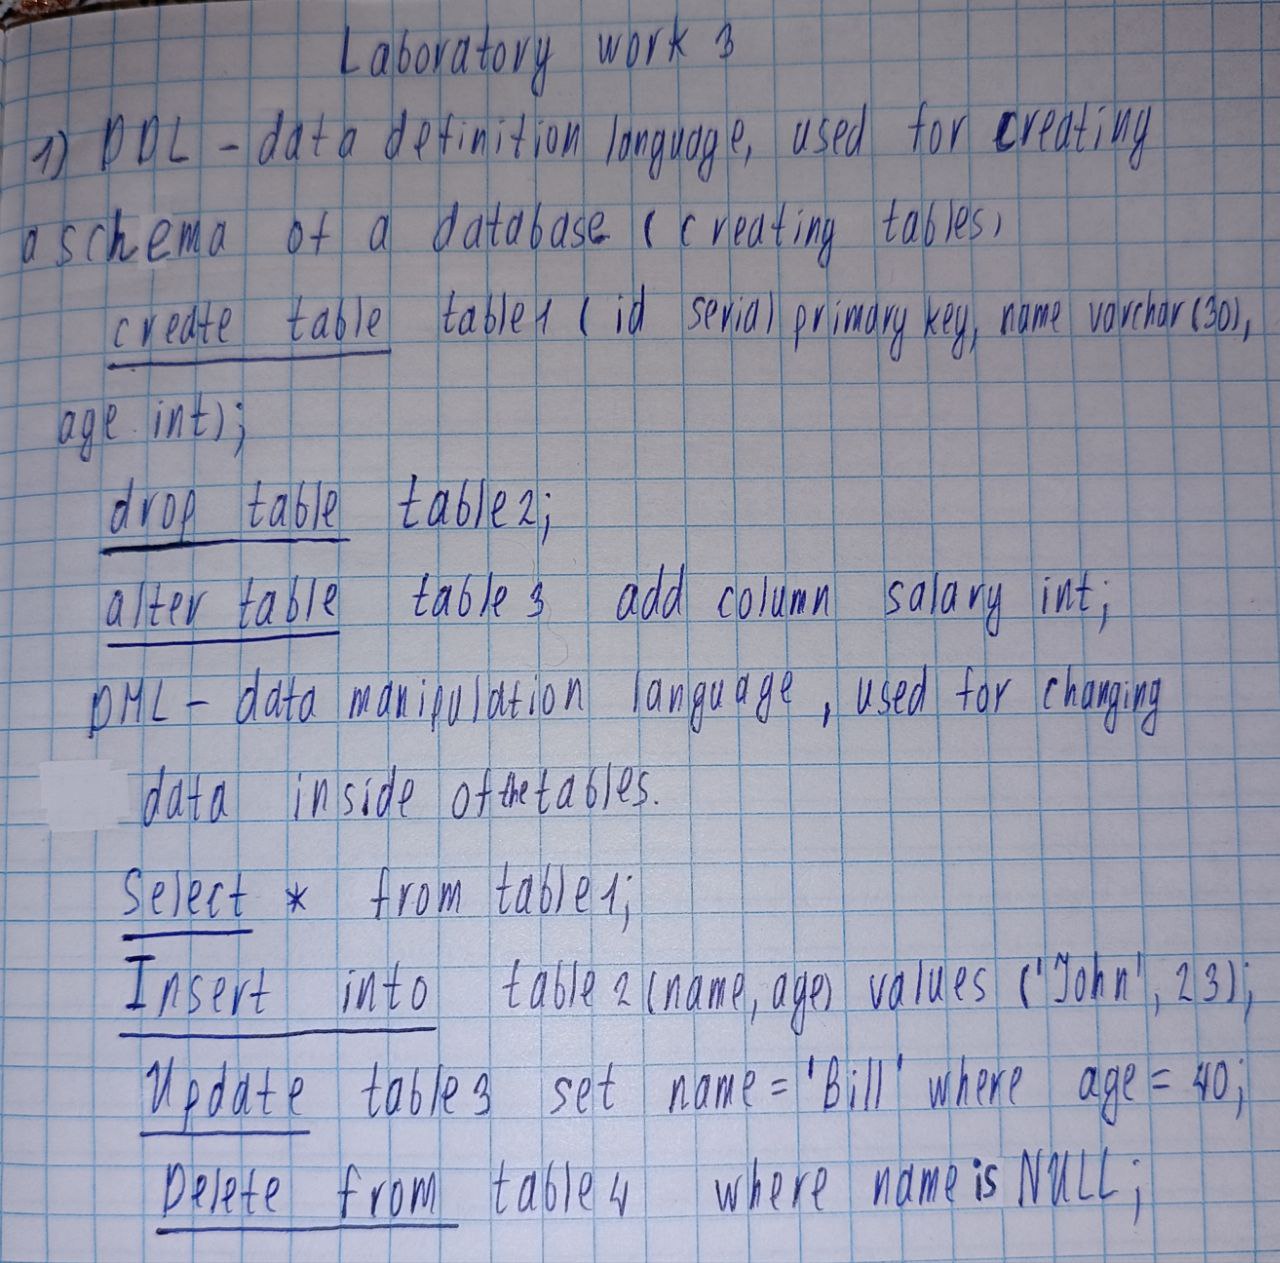 Laboratory work 3
1) DDL - data definition language, used for creating
a schema of a database (creating tables)
create table table1 (id serial primary key, name varchar(30),
age int);
drop table table2;
alter table table3 add column salary int;
DML - data manipulation language, used for changing
data inside of the tables.
Select * from table1;
Insert into table2(name, age) values ('John', 23);
Update table3 set name = 'Bill' where age = 40;
Delete from table4 where name is NULL;